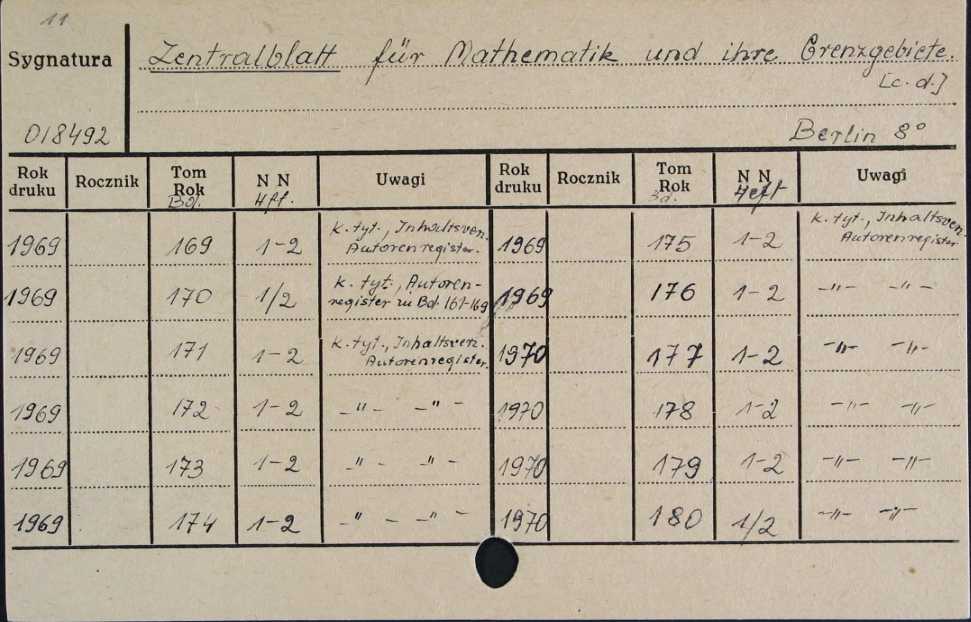 11
Sygnatura
Zentralblatt für Mathematik und ihre Grenzgebiete.
[c.d.]
018492
Berlin 8°
Rok druku Rocznik Tom Rok Bd. N N Hft. Uwagi Rok druku Rocznik Tom Rok Bd. N N Heft Uwagi
1969 169 1-2 K. tyt., Inhaltsverz. Autorenregister. 1969 175 1-2 K. tyt., Inhaltsverz. Autorenregister
1969 170 1/2 K. tyt., Autorenregister zu Bd. 161-169 1969 176 1-2 -"- -"-
1969 171 1-2 K. tyt., Inhaltsverz. Autorenregister. 1970 177 1-2 -"- -"-
1969 172 1-2 -"- -"- 1970 178 1-2 -"- -"-
1969 173 1-2 -"- -"- 1970 179 1-2 -"- -"-
1969 174 1-2 -"- -"- 1970 180 1/2 -"- -"-